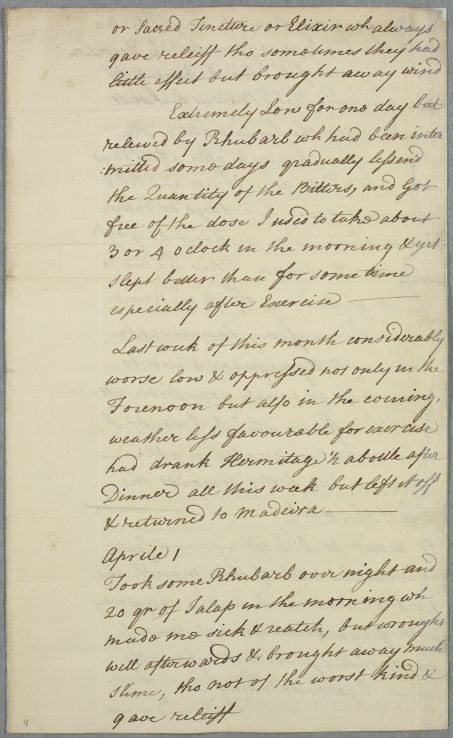 or Sacred Tincture or Elixir wh always
gave releiff tho sometimes they had
little effect but brought away wind
Extremely Low for one day but
releived by Rhubarb wh had been inter
:mitted some days gradually lessend
the Quantity of the Bitters, and Got
free of the dose I used to take about
3 or 4 oclock in the morning & yet
slept better than for some time
especially after Exercise
Last week of this month considerably
worse low & oppressed not only in the
Forenoon but also in the evening,
weather less favourable for exercise
had drank Hermitage ½ a bottle after
Dinner all this week but left it off
& returned to Madeira
Aprile 1
Took some Rhubarb over night and
20 gr of Jalap in the morning wh
made me sick & reatch, but wrought
well afterwards & brought away much
slime, tho not of the worst kind &
gave releiff
11